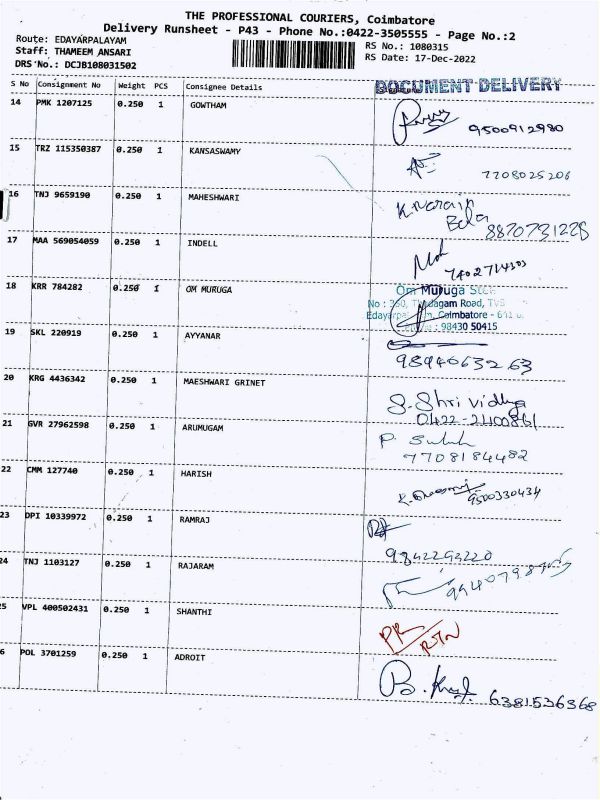 THE PROFESSIONAL COURIERS, Coimbatore
Delivery Runsheet - P43 - Phone No.:0422-3505555 - Page No.:2
Route: EDAYARPALAYAM
Staff: THAMEEM ANSARI
DRS No.: DCJB108031502
RS No.: 1080315
RS Date: 17-Dec-2022
S No Consignment No Weight PCS Consignee Details
DOCUMENT DELIVERY
14 PMK 1207125 0.250 1 GOWTHAM
9500912980
15 TRZ 115350387 0.250 1 KANSASWAMY
7708025206
16 TNJ 9659190 0.250 1 MAHESHWARI
K.Narain
8870731228
17 MAA 569054059 0.250 1 INDELL
18 KRR 784282 0.250 1 OM MURUGA
Om Muruga
No : Road, TVS
Coimbatore - 641
: 98430 50415
19 SKL 220919 0.250 1 AYYANAR
9894063263
20 KRG 4436342 0.250 1 MAESHWARI GRINET
S. Shri vidhya
0422-2400861
21 GVR 27962598 0.250 1 ARUMUGAM
P.
7708184482
22 CMM 127740 0.250 1 HARISH
9500330434
23 DPI 10339972 0.250 1 RAMRAJ
9842292220
24 TNJ 1103127 0.250 1 RAJARAM
5 VPL 400502431 0.250 1 SHANTHI
RTN
6 POL 3701259 0.250 1 ADROIT
6381536368